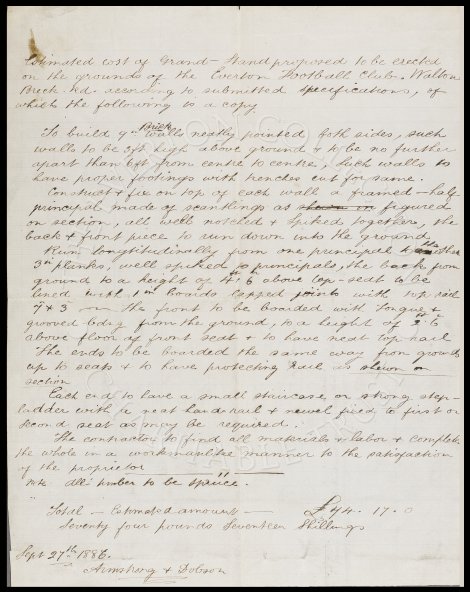 Estimated cost of Grand-Stand proposed to be erected
on the grounds of the Everton Football Club. Walton
Breck Rd. according to submitted specifications, of
which the following is a copy
To build 9" Brick walls neatly pointed both sides, such
walls to be 2ft high above ground & to be no further
apart than 6ft from centre to centre, Such walls to
have proper footings with trenches cut for same.
Construct & fix on top of each wall a framed-half
principal made of scantlings as shewn on figured
on section, all well notched & spiked together, the
back & front piece to run down into the ground
Run longtitudinally from one principal to another
3in planks, well spiked principals, the back from
ground to a height of 4ft 6 above top-seat to be
lined with 1in Boards lapped joints with top rail
7 & 3 the front to be boarded with tongue &
grooved bdng from the ground, to a height of 2.6
above floor of front seat & to have neat top rail
The ends to be boarded the same way from ground
up to seats & to have protecting rail as shewn on
section
Each end to have a small staircase or strong step-
ladder with a neat hand-rail & newel fixed to first or
second seat as may be required.
The contractor to find all materials & labor & complete
the whole in a workmanlike manner to the satisfaction
of the proprietor
Note all timber to be spruce.
Total - Estimated amount - £74. 17. 0
Seventy four pounds Seventeen Shillings
Sept 27th 1886.
Armstrong & Dobson